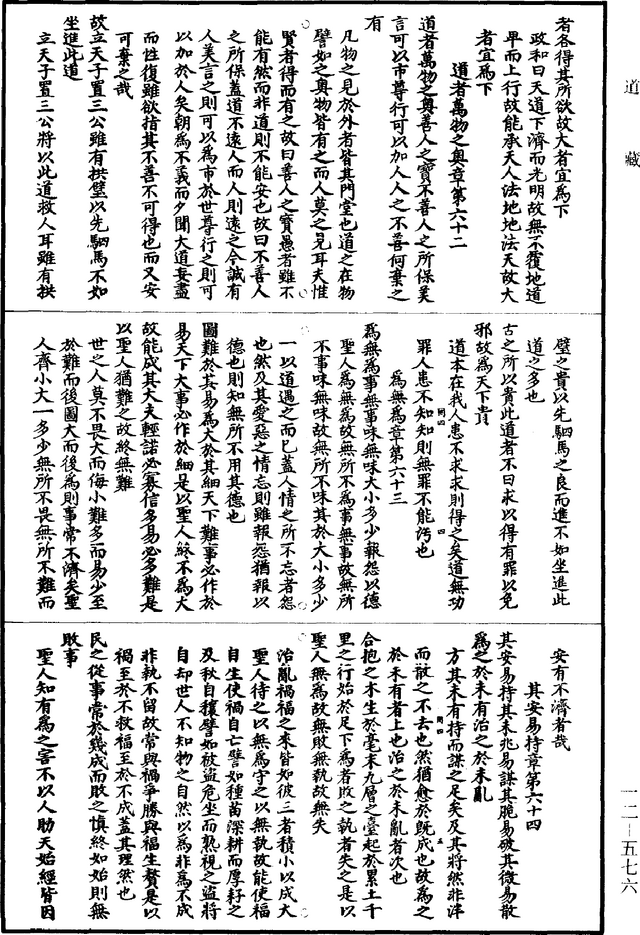 道藏
者各得其所欲故大者宜為下
政和曰天道下濟而光明故無不覆地道
卑而上行故能承天人法地地法天故大
者宜為下
道者萬物之奧章第六十二
道者萬物之奧善人之寶不善人之所保美
言可以市尊行可以加人人之不善何棄之
有
凡物之見於外者皆其門堂也道之在物
譬如之奧物皆有之而人莫之見耳夫惟
賢者得而有之故曰善人之寶愚者雖不
能有然而非道則不能安也故曰不善人
之所保蓋道不遠人而人則遠之今誠有
人美言之則可以為市於世尊行之則可
以加於人矣朝為不義而夕聞大道妄盡
而性復雖欲指其不善不可得也而又安
可棄之哉
故立天子置三公雖有拱璧以先駟馬不如
坐進此道
立天子置三公將以此道救人耳雖有拱
璧之貴以先駟馬之良而進不如坐進此
道之多也
古之所以貴此道者不曰求以得有罪以免
邪故為天下貴
道本在我人患不求求則得之矣道無功
罪人患不知知則無罪不能污也
為無為章第六十三
為無為事無事味無味大小多少報怨以德
聖人為無為故無所不為事無事故無所
不事味無味故無所不味其於大小多少
一以道遇之而已蓋人情之所不忘者怨
也然及其愛惡之情忘則雖報怨猶報以
德也則知無所不用其德也
圖難於其易為大於其細天下難事必作於
易天下大事必作於細是以聖人終不為大
故能成其大夫輕諾必寡信多易必多難是
以聖人猶難之故終無難
世之人莫不畏大而侮小難多而易少至
於難而後圖大而後為則事常不濟矣聖
人齊小大一多少無所不畏無所不難而
安有不濟者哉
其安易持章第六十四
其安易持其未兆易謀其脆易破其微易散
為之於未有治之於未亂
方其未有持而謀之足矣及其將然非泮
而散之不去也然猶愈於既成也故為之
於未有者上也治之於未亂者次也
合抱之木生於毫末九層之臺起於累土千
里之行始於足下為者敗之執者失之是以
聖人無為故無敗無執故無失
治亂禍福之來皆如彼三者積小以成大
聖人待之以無為守之以無執故能使福
自生使禍自亡譬如種苗深耕而厚耔之
及秋自穫譬如被盜危坐而熟視之盜將
自却世人不知物之自然以為非為不成
非執不留故常與禍爭勝與福生贅是以
禍至於不救福至於不成蓋其理然也
民之從事常於幾成而敗之慎終如始則無
敗事
聖人知有為之害不以人助天始經皆因
一二—五七六